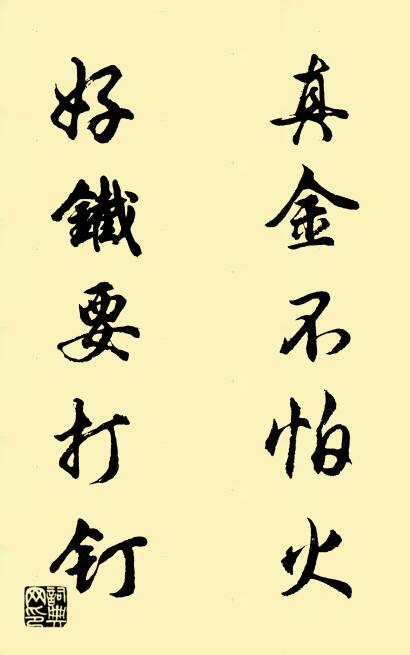 真金不怕火
好鐵要打釘
詞典网印